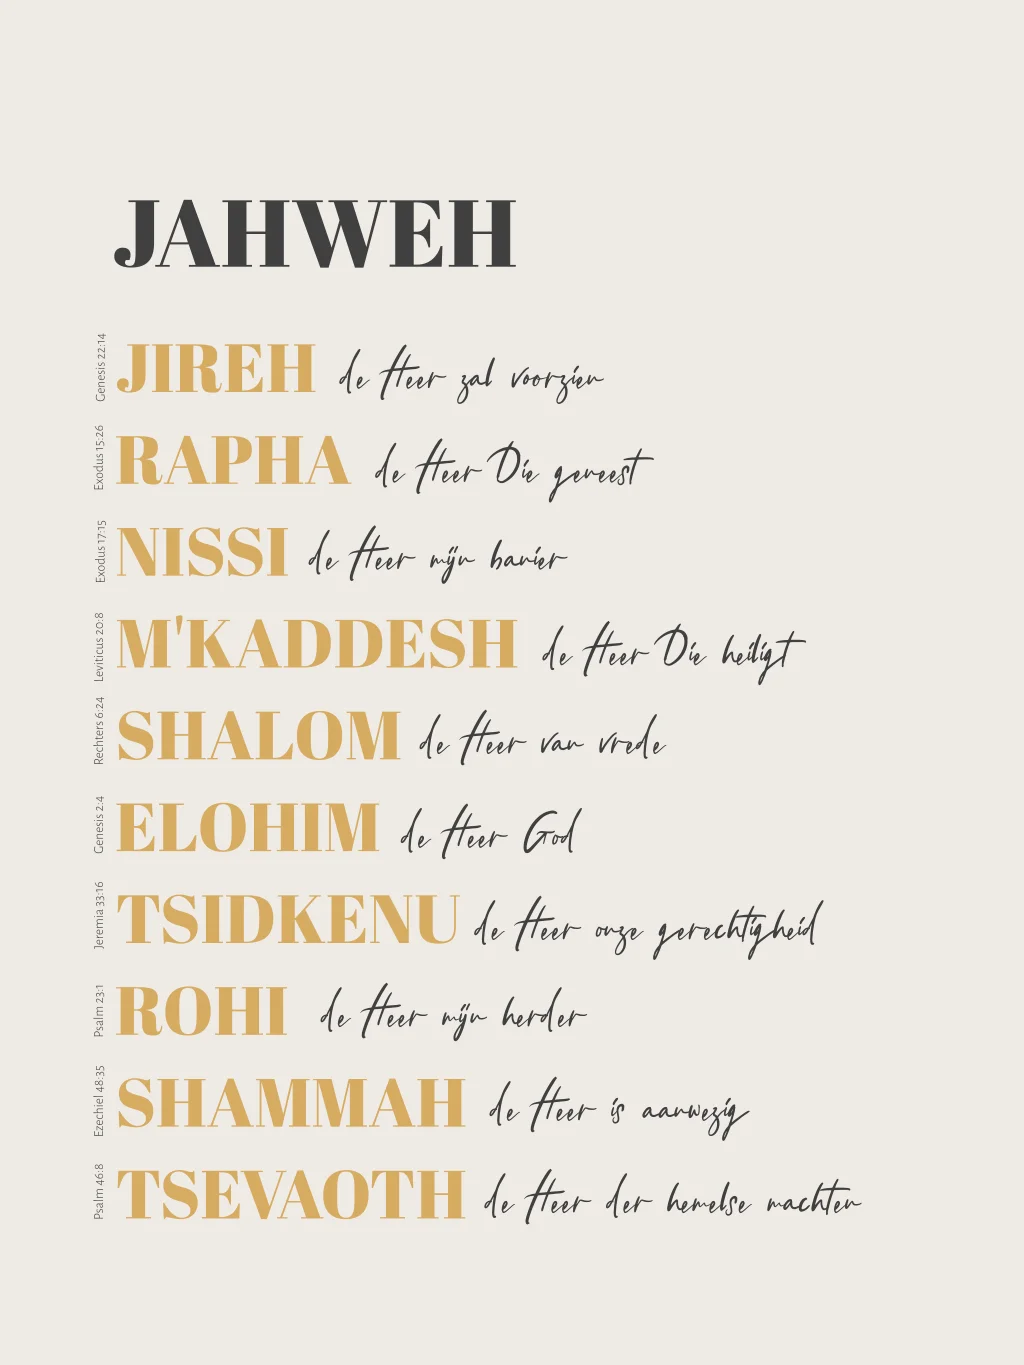 JAHWEH
Genesis 22:14 JIREH de Heer zal voorzien
Exodus 15:26 RAPHA de Heer Die geneest
Exodus 17:15 NISSI de Heer mijn banier
Leviticus 20:8 M'KADDESH de Heer Die heiligt
Rechters 6:24 SHALOM de Heer van vrede
Genesis 2:4 ELOHIM de Heer God
Jeremia 33:16 TSIDKENU de Heer onze gerechtigheid
Psalm 23:1 ROHI de Heer mijn herder
Ezechiel 48:35 SHAMMAH de Heer is aanwezig
Psalm 46:8 TSEVAOTH de Heer der hemelse machten